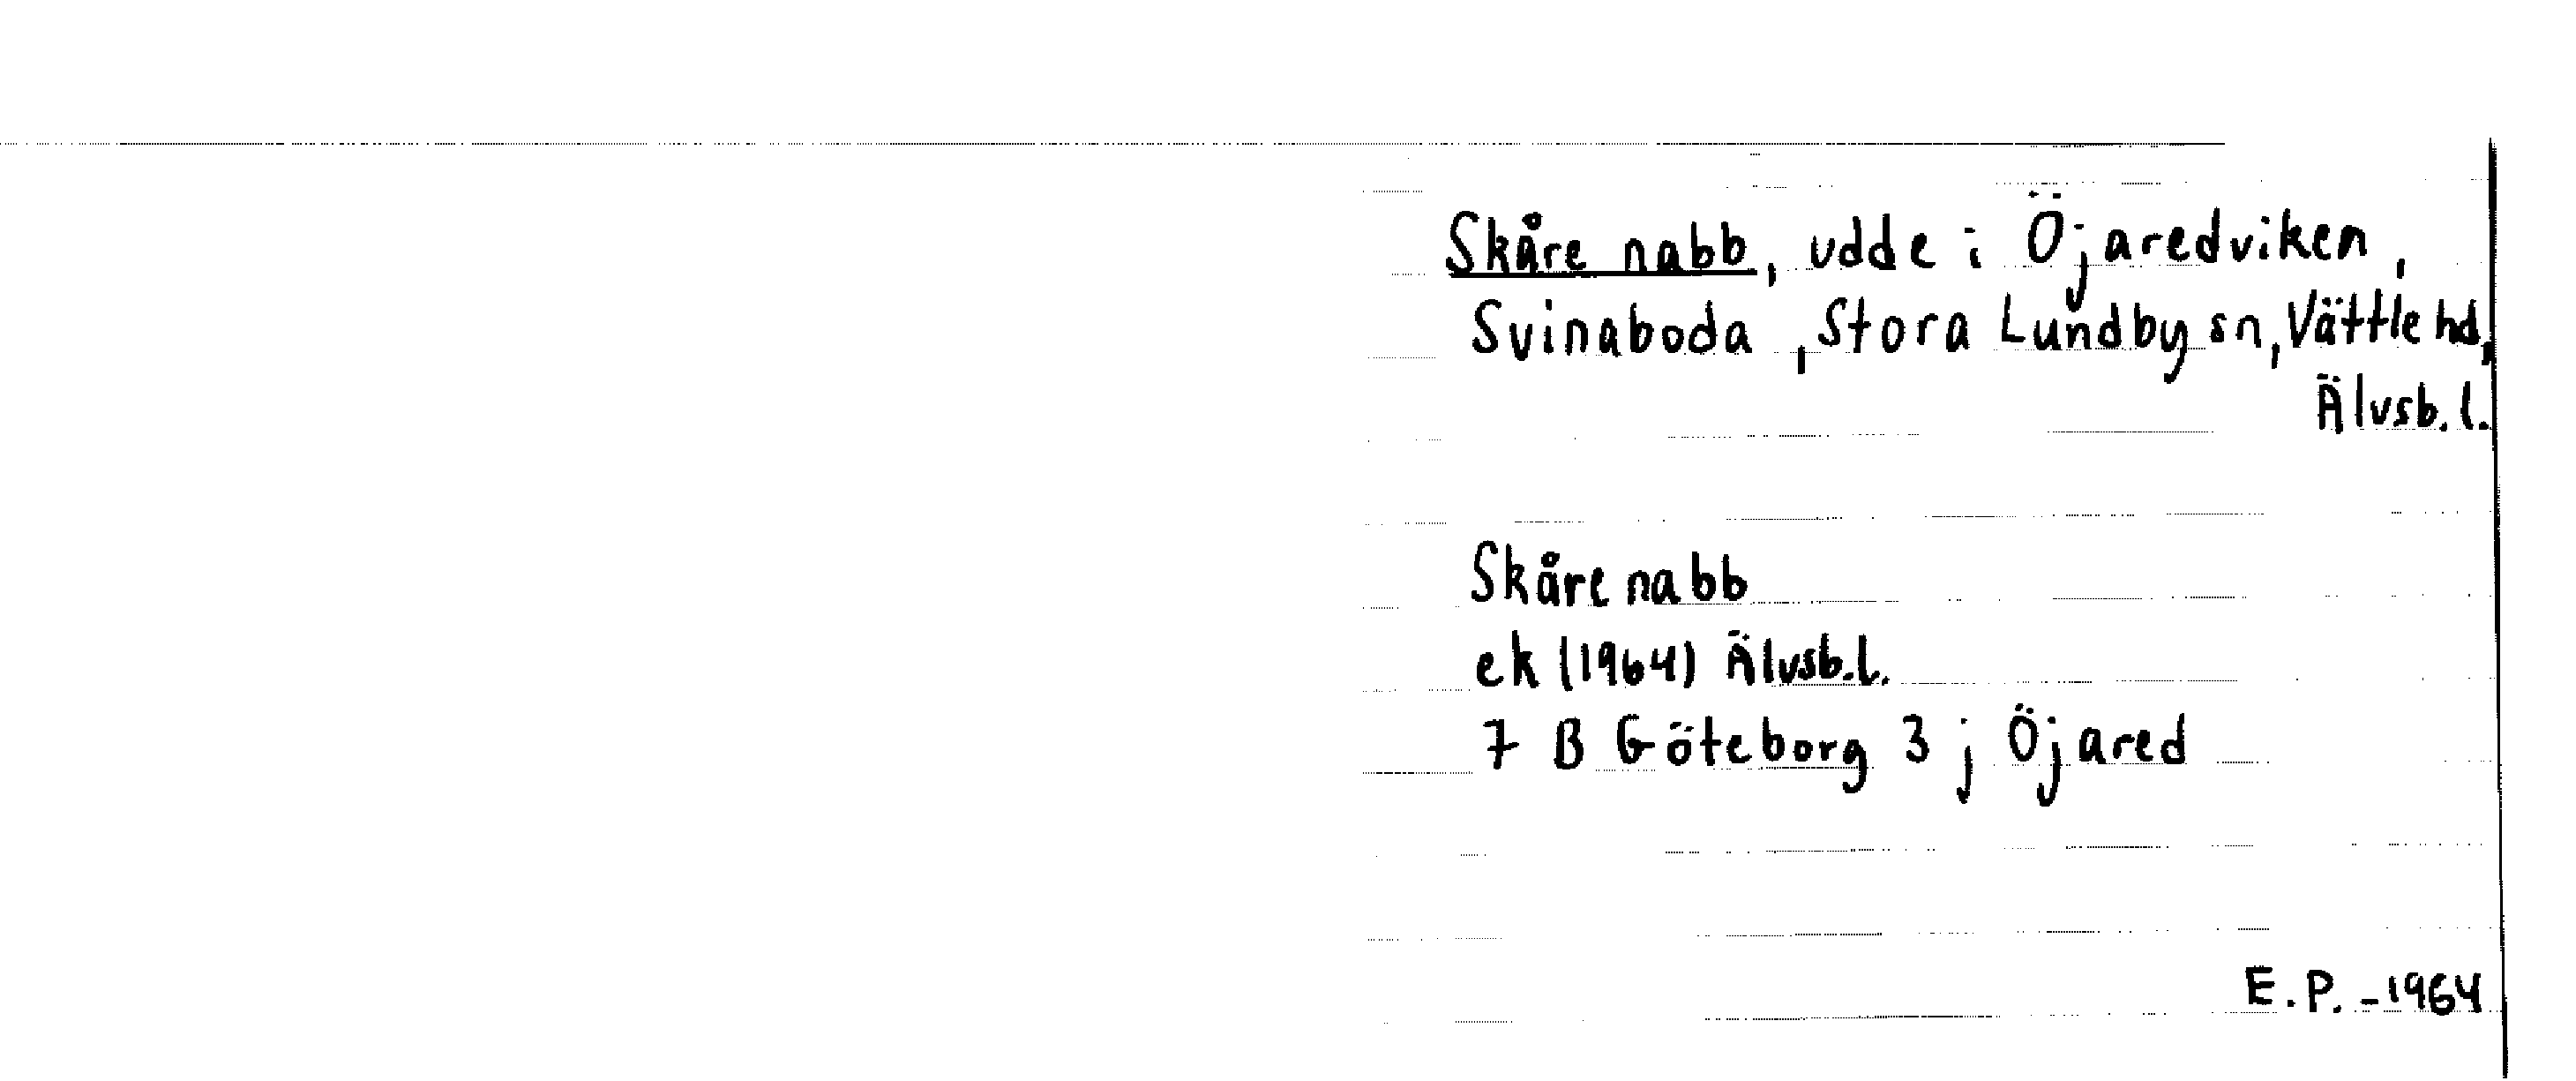 Skåre nabb, udde i Öjaredviken,
Svinaboda, Stora Lundby sn, Vättle hd,
Älvsb. l.
Skåre nabb
ek (1964) Älvsb. l.
7 B Göteborg 3 j Öjared
E.P. -1964